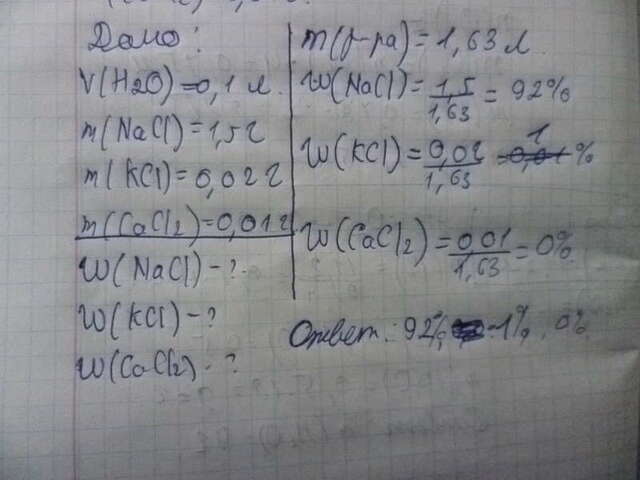 Дано:
V(H2O)=0,1 л.
m(NaCl)=1,5г
m(KCl)=0,02г
m(CaCl2)=0,01г
W(NaCl)-?
W(KCl)-?
W(CaCl2)-?
m(р-ра)=1,63л.
W(NaCl)=1,5/1,63=92%
W(KCl)=0,02/1,63 1%
W(CaCl2)=0,01/1,63=0%
Ответ: 92%, 1%, 0%